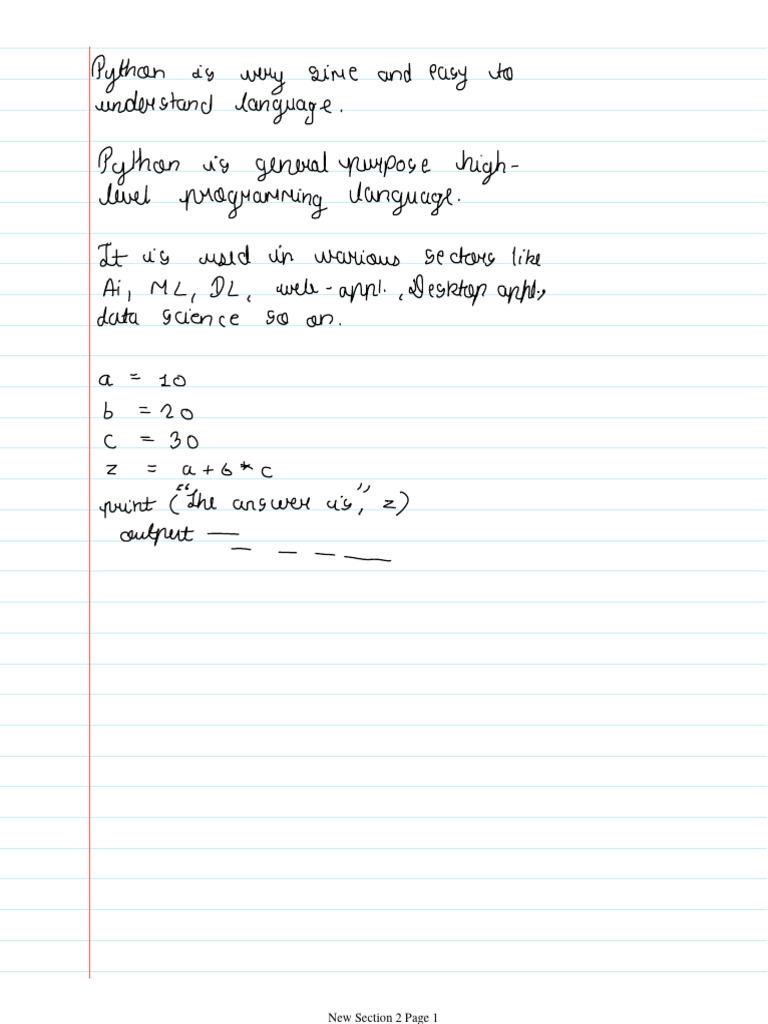 Python is very sime and easy to
understand language.
Python is general purpose high-
level programming language.
It is used in various sectors like
Ai, ML, DL, web-appl., Desktop appl.,
data science so on.
a = 10
b = 20
c = 30
z = a + b * c
print (“The answer is”, z)
output —
— — — —
New Section 2 Page 1